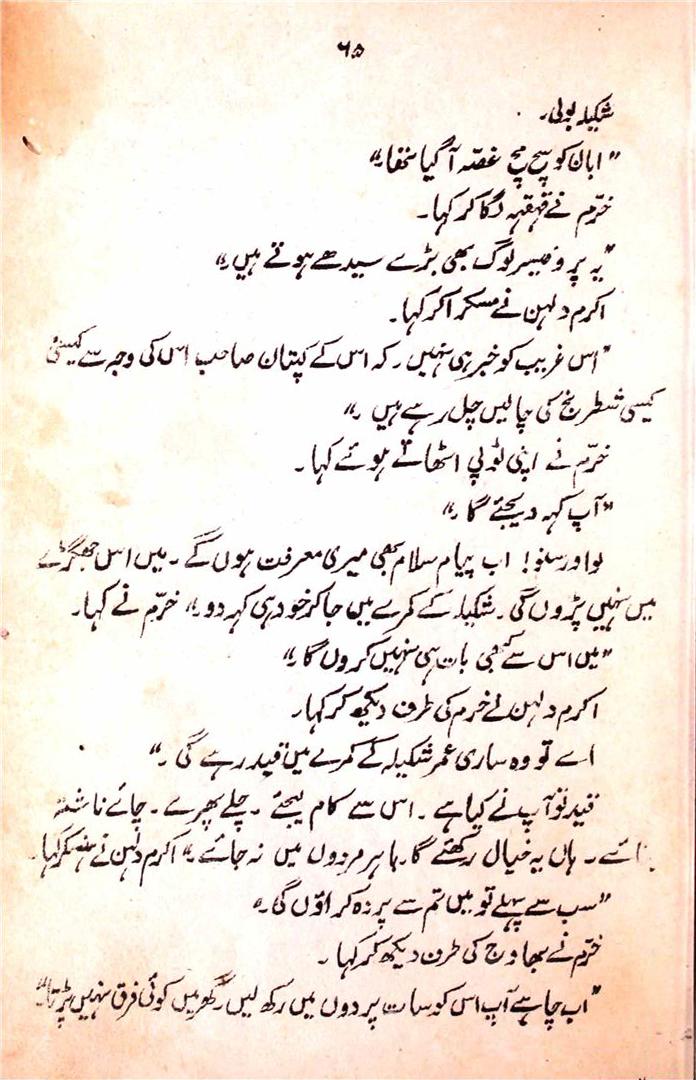 ۶۵
شکیلہ بولی۔
"ابان کو سچ مچ غصّہ آگیا تھا۔"
خرّم نے قہقہہ لگا کر کہا۔
"یہ پروفیسر لوگ بھی بڑے سیدھے ہوتے ہیں۔"
اکرم دلہن نے مسکرا کر کہا۔
"اس غریب کو خبر ہی نہیں۔ کہ اس کے کپتان صاحب اس کی وجہ سے کیسی
کیسی شطرنج کی چالیں چل رہے ہیں۔"
خرّم نے اپنی ٹوپی اٹھاتے ہوئے کہا۔
"آپ کہہ دیجئے گا۔"
لو اور سنو! اب پیام سلام بھی میری معرفت ہوں گے۔ میں اس جھگڑے
میں نہیں پڑوں گی۔ شکیلہ کے کمرے میں جا کر خود ہی کہہ دو۔" خرّم نے کہا۔
"میں اس سے کبھی بات ہی نہیں کروں گا۔"
اکرم دلہن نے خرم کی طرف دیکھ کر کہا۔
اے تو وہ ساری عمر شکیلہ کے کمرے میں قید رہے گی۔"
قید تو آپ نے کیا ہے۔ اس سے کام لیجئے۔ چلے پھرے۔ چائے ناشتہ
بنائے۔ ہاں یہ خیال رکھئے گا۔ باہر مردوں میں نہ جائے۔" اکرم دلہن نے ہنسکر کہا۔
"سب سے پہلے تو میں تم سے پردہ کراؤں گی۔"
خرّم نے بھاوج کی طرف دیکھ کر کہا۔
"اب چاہے آپ اس کو سات پردوں میں رکھ لیں۔ گھر میں کوئی فرق نہیں پڑتا۔"